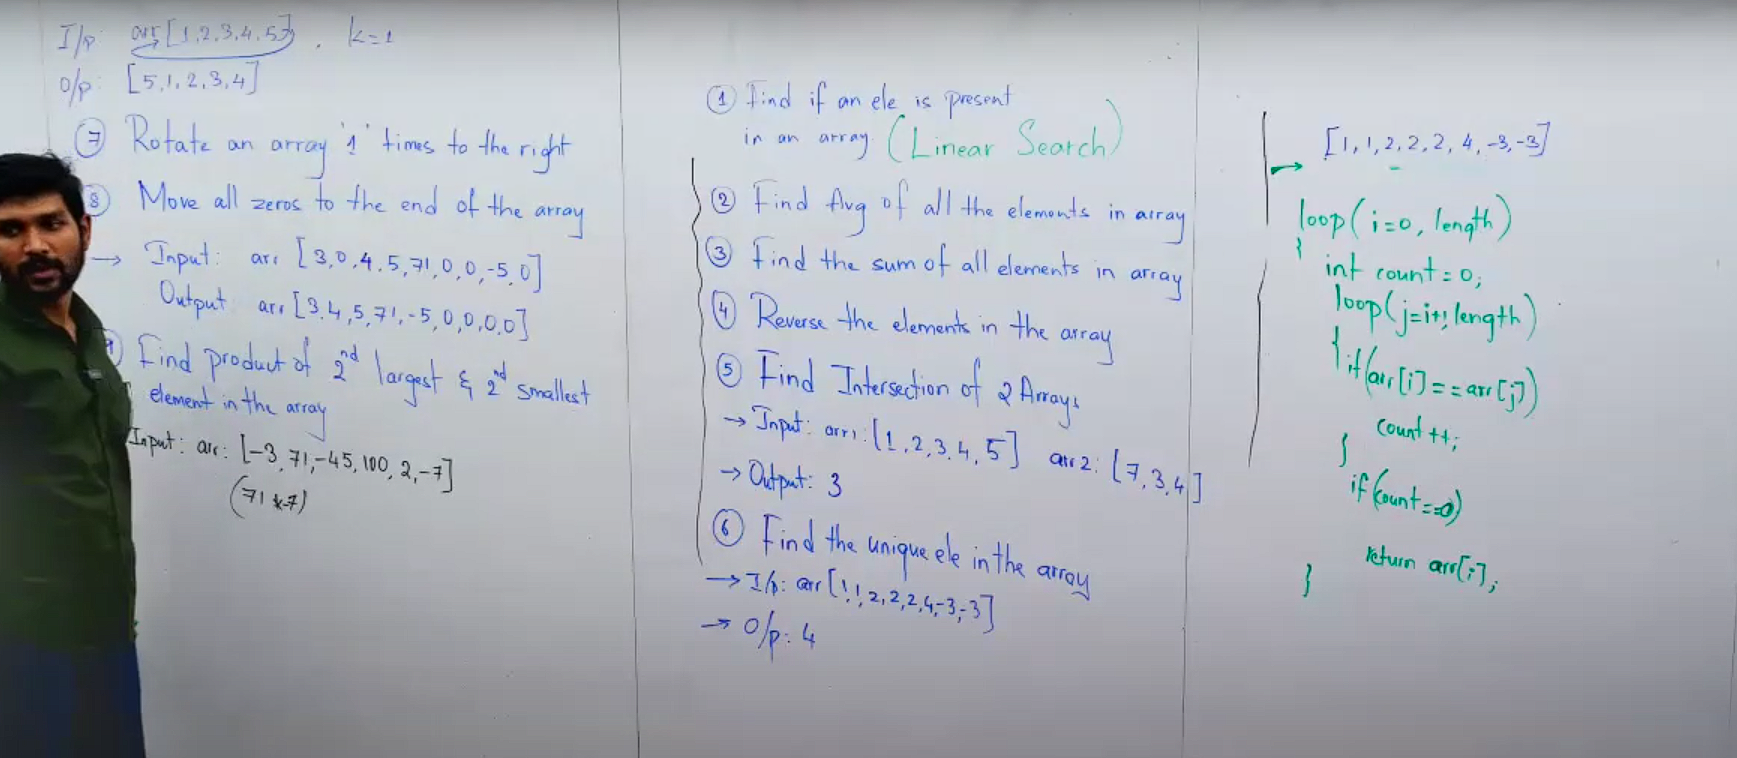 I/p: arr[1,2,3,4,5], k=1
O/p: [5,1,2,3,4]
⑦ Rotate an array '1' times to the right
⑧ Move all zeros to the end of the array
→ Input: arr [3,0,4,5,71,0,0,-5,0]
Output arr [3,4,5,71,-5,0,0,0,0]
Find product of 2nd largest & 2nd smallest
element in the array
Input: arr: [-3,71,-45,100,2,-7]
(71*-7)
① Find if an ele is present
in an array (Linear Search)
② Find Avg of all the elements in array
③ Find the sum of all elements in array
④ Reverse the elements in the array
⑤ Find Intersection of 2 Arrays
→ Input: arr1: [1,2,3,4,5] arr2: [7,3,4]
→ Output: 3
⑥ Find the unique ele in the array
→ I/p: arr[1,1,2,2,2,4,-3,-3]
→ O/p: 4
→ [1,1,2,2,2,4,-3,-3]
loop(i=0, length)
{
int count=0;
loop(j=i+1, length)
{
if(arr[i]==arr[j])
count++;
}
if(count==0)
return arr[i];
}